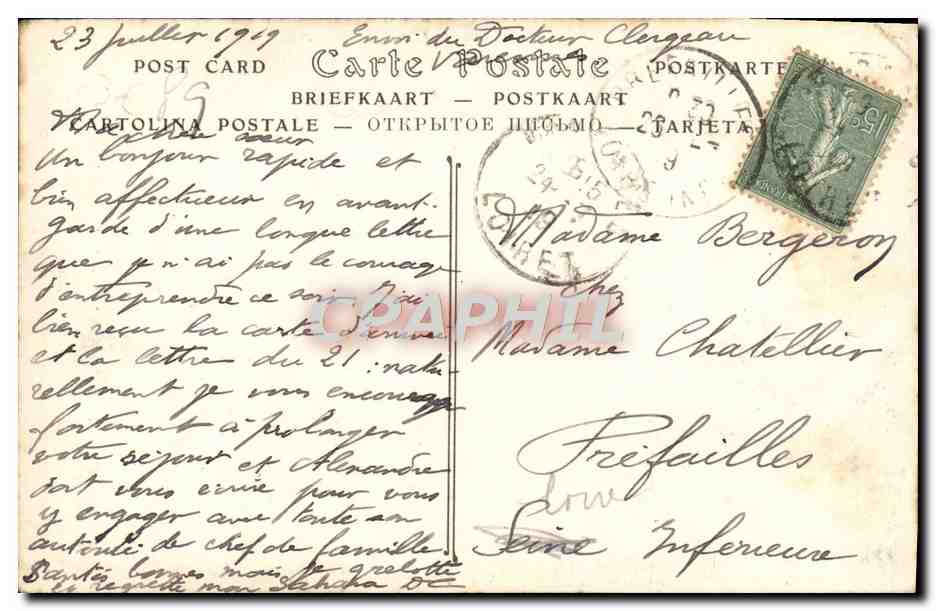 23 Juillet 1919 Envoi du Docteur Clergeau
POST CARD Carte Postale POSTKARTE
BRIEFKAART — POSTKAART
CARTOLINA POSTALE — ОТКРЫТОЕ ПИСЬМО — TARJETA
15c
LOIRET
Ma chère sœur
Un bonjour rapide et
bien affectueux en avant-
garde d'une longue lettre
que je n'ai pas le courage
d'entreprendre ce soir. J'ai
bien reçu la carte d'
et la lettre du 21 : natu-
rellement je vous encourage
fortement à prolonger
votre séjour et Alexandre
doit vous écrire pour vous
y engager avec toute son
autorité de chef de famille
Santés bonnes mais je grelotte
et regrette mon Sahara Dr C
Madame Bergeron
chez
Madame Chatellier
Préfailles
Loire
Seine Inferieure
CPAPHIL